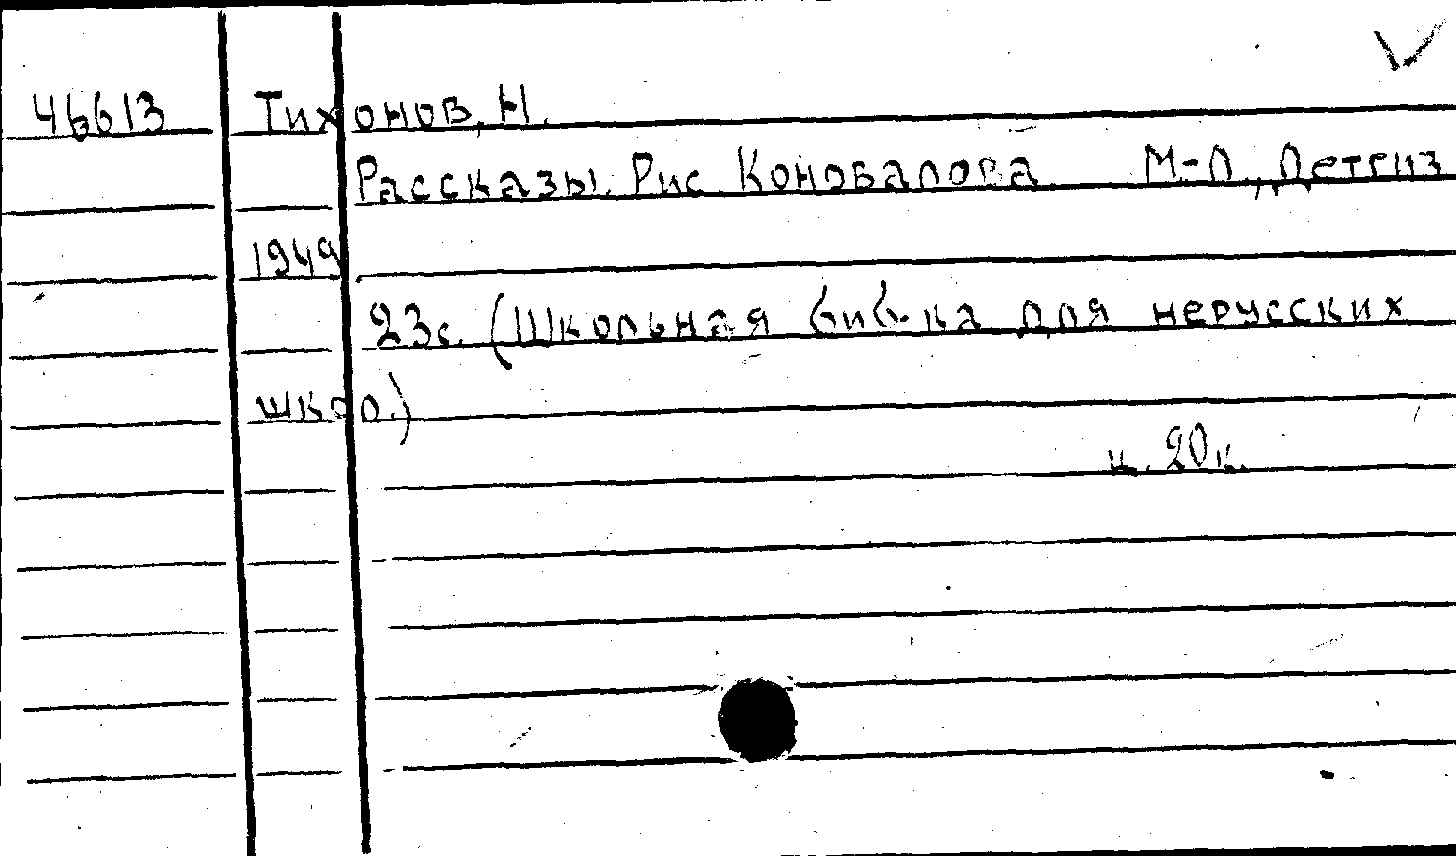 46613 Тихонов, Н.
Рассказы. Рис. Коновалова М-Л., Детгиз
1949
23с. (Школьная биб-ка для нерусских
школ.)
ц. 20к.